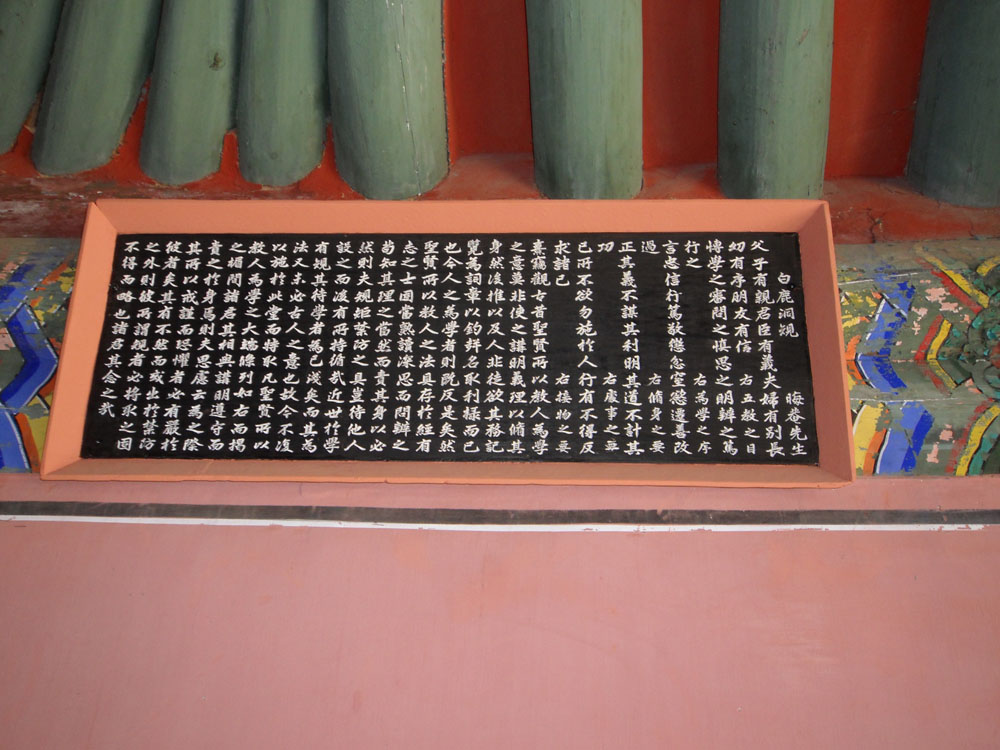 白鹿洞規　晦菴先生
父子有親君臣有義夫婦有別長
幼有序朋友有信　右五敎之目
博學之審問之慎思之明辨之篤
行之　右爲學之序
言忠信行篤敬懲忿窒慾遷善改
過　右脩身之要
正其義不謀其利明其道不計其
功　右處事之要
己所不欲勿施於人行有不得反
求諸己　右接物之要
熹竊觀古昔聖賢所以敎人爲學
之意莫非使之講明義理以脩其
身然後推以及人非徒欲其務記
覽爲詞章以釣聲名取利祿而已
也今人之爲學者則旣反是矣然
聖賢所以敎人之法具存於經有
志之士固當熟讀深思而問辨之
苟知其理之當然而責其身以必
然則夫規矩禁防之具豈待他人
設之而後有所持循哉近世於學
有規其待學者爲已淺矣而其爲
法又未必古人之意也故今不復
以施於此堂而特取凡聖賢所以
敎人爲學之大端條列如右而揭
之楣間諸君其相與講明遵守而
責之於身焉則夫思慮云爲之際
其所以戒謹而恐懼者必有嚴於
彼者矣其有不然而或出於禁防
之外則彼所謂規者必將取之固
不得而略也諸君其念之哉